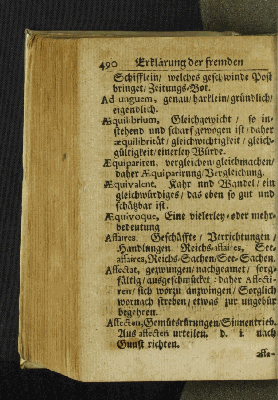 490 Erklärung der fremden
Schifflein/ welches geschwinde Post
bringet/ Zeitungs-Bot.
Ad unguem, genau/ härklein/ gründlich/
eigendlich.
Æquilibrium, Gleichgewicht / so in-
stehend und scharf gewogen ist / daher
æquilibrität/ gleichwichtigkeit / gleich-
gültigkeit/ einerley Würde.
Æquipariren, vergleichen/ gleichmachen/
daher Æquiparirung/ Vergleichung.
Æquivalent, Kahr und Wandel/ ein
gleichwürdiges/ das eben so gut und
schätzbar ist.
Æquivoque, Eine vielerley- oder mehr-
bedeutung
Affaires, Geschäffte / Verrichtungen /
Handlungen Reichs-affaires, See-
affaires, Reichs-Sachen/ See-Sachen.
Affectat, gezwungen/ nachgeamet/ sorg-
fältig/ ausgeschmücket: daher Affecti-
ren/ sich worzu anzwingen/ Sorglich
wornach streben/ etwas zur ungebür
begehren.
Affecten, Gemütsrürungen/ Sinnentrieb.
Aus affecten urteilen. d. i. nach
Gunst richten.
affe-